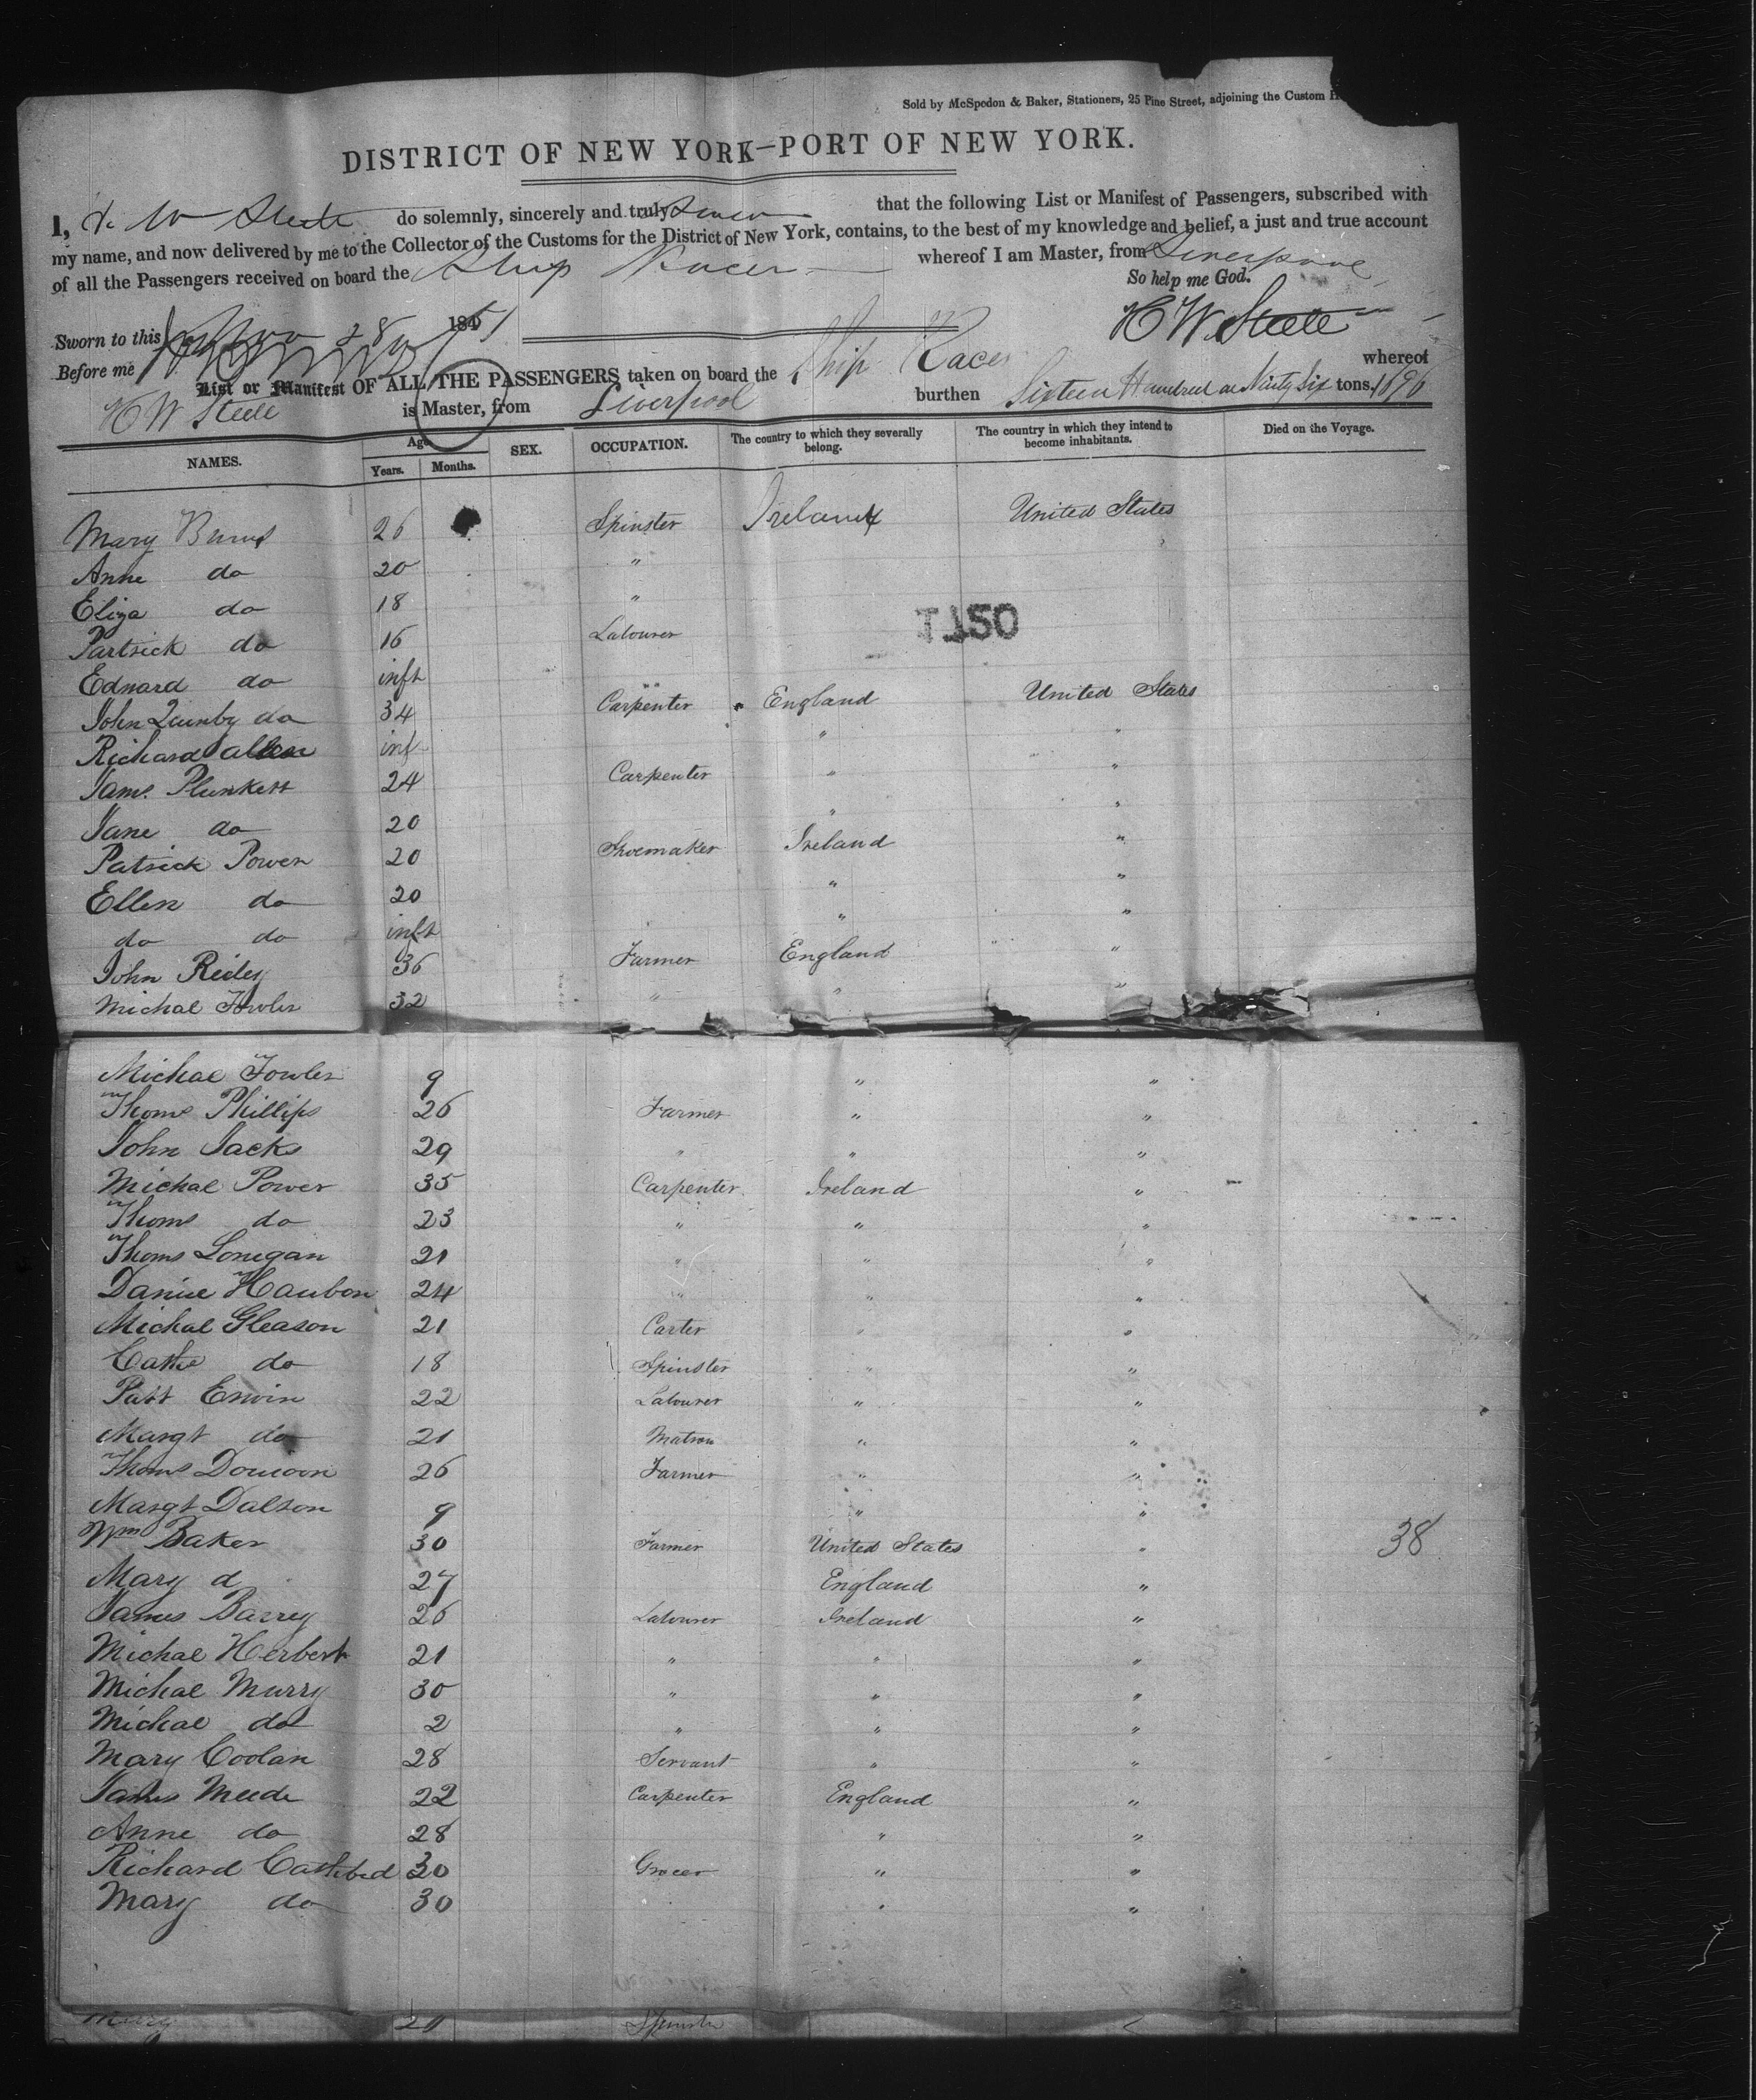 Sold by McSpedon & Baker, Stationers, 25 Pine Street, adjoining the Custom H
DISTRICT OF NEW YORK—PORT OF NEW YORK.
I, H W Steele do solemnly, sincerely and truly Swear that the following List or Manifest of Passengers, subscribed with
my name, and now delivered by me to the Collector of the Customs for the District of New York, contains, to the best of my knowledge and belief, a just and true account
of all the Passengers received on board the Ship Racer whereof I am Master, from Liverpool
So help me God.
Sworn to this 28 1851
H W Steele
Before me
List or Manifest OF ALL THE PASSENGERS taken on board the Ship Racer whereof
H W Steele is Master, from Liverpool burthen Sixteen Hundred & Ninty Six tons. 1696
NAMES. Age Years. Months. SEX. OCCUPATION. The country to which they severally belong. The country in which they intend to become inhabitants. Died on the Voyage.
Mary Burns 26 Spinster Ireland United States
Anne do 20 "
Eliza do 18 "
Partrick do 16 Labourer
Edward do inft
John Quinby do 34 Carpenter England United States
Richard Allen inf " "
Jams. Plunkett 24 Carpenter " "
Jane do 20 " "
Patrick Power 20 Shoemaker Ireland "
Ellen do 20 " "
do do inft " "
John Reiley 36 Farmer England "
Michal Fowler 32 " " "
Michae Fowler 9 " "
Thoms Phillips 26 Farmer " "
John Jacks 29 " " "
Michae Power 35 Carpenter Ireland "
Thoms do 23 " " "
Thoms Lonegan 21 " " "
Danie 24 " " "
Michae Gleason 21 Carter " "
Cathe do 18 Spinster " "
Patt Erwin 22 Labourer " "
Margt do 21 Matron " "
Thoms 26 Farmer " "
Margt Dalton 9 " "
Wm Baker 30 Farmer United States " 38
Mary d 27 England "
James Barrey 26 Labourer Ireland "
Michae Herbert 21 " " "
Michae Murry 30 " " "
Michae do 2 " " "
Mary Coolan 28 Servant " "
James Meede 22 Carpenter England "
Anne do 28 " "
Richard 30 Grocer " "
Mary do 30 " "
Mary 20 Spinster